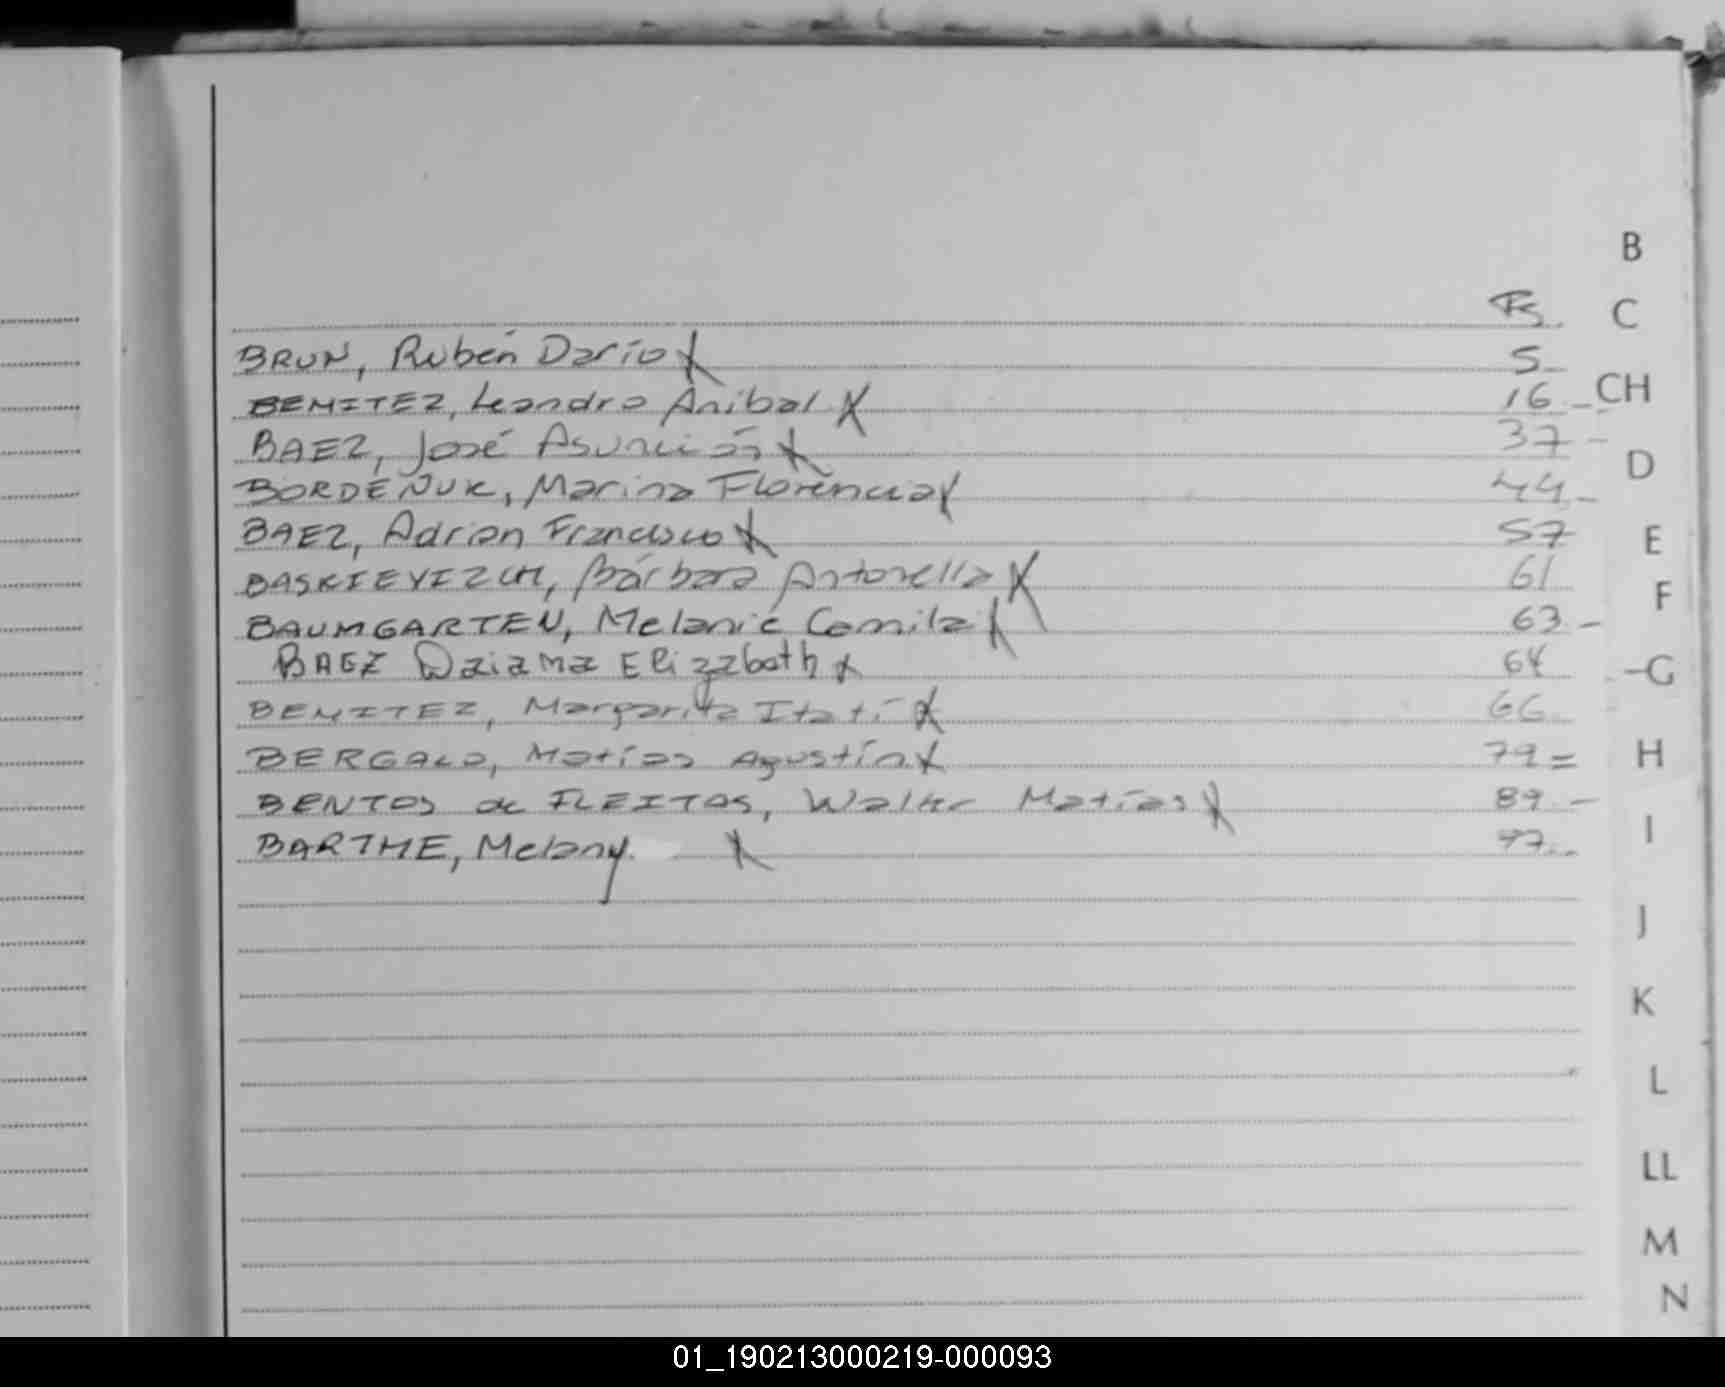 Fs.
BRUN, Rubén Darío X 5
BENITEZ, Leandro Anibal X 16
BAEZ, José Asunción X 37
BORDEÑUK, Marina Florencia X 44
BAEZ, Adrian Francisco X 57
BASKIEVIZCH, Bárbara Antonella X 61
BAUMGARTEN, Melanie Camila X 63
BAEZ Daiama Elizabeth X 64
BENITEZ, Margarita Itatí X 66
BERGALO, Matías Agustín X 79
BENTOS de FLEITAS, Walter Matías X 89
BARTHE, Melany. X 97
B
C
CH
D
E
F
G
H
I
J
K
L
LL
M
N
01_190213000219-000093